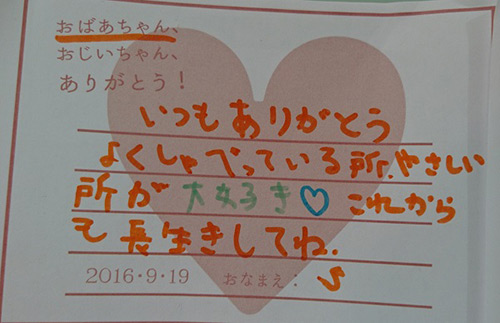 おばあちゃん、
おじいちゃん、
ありがとう!
いつもありがとう
よくしゃべっている所、やさしい
所が大好き♡これから
も長生きしてね.
2016・9・19 おなまえ: